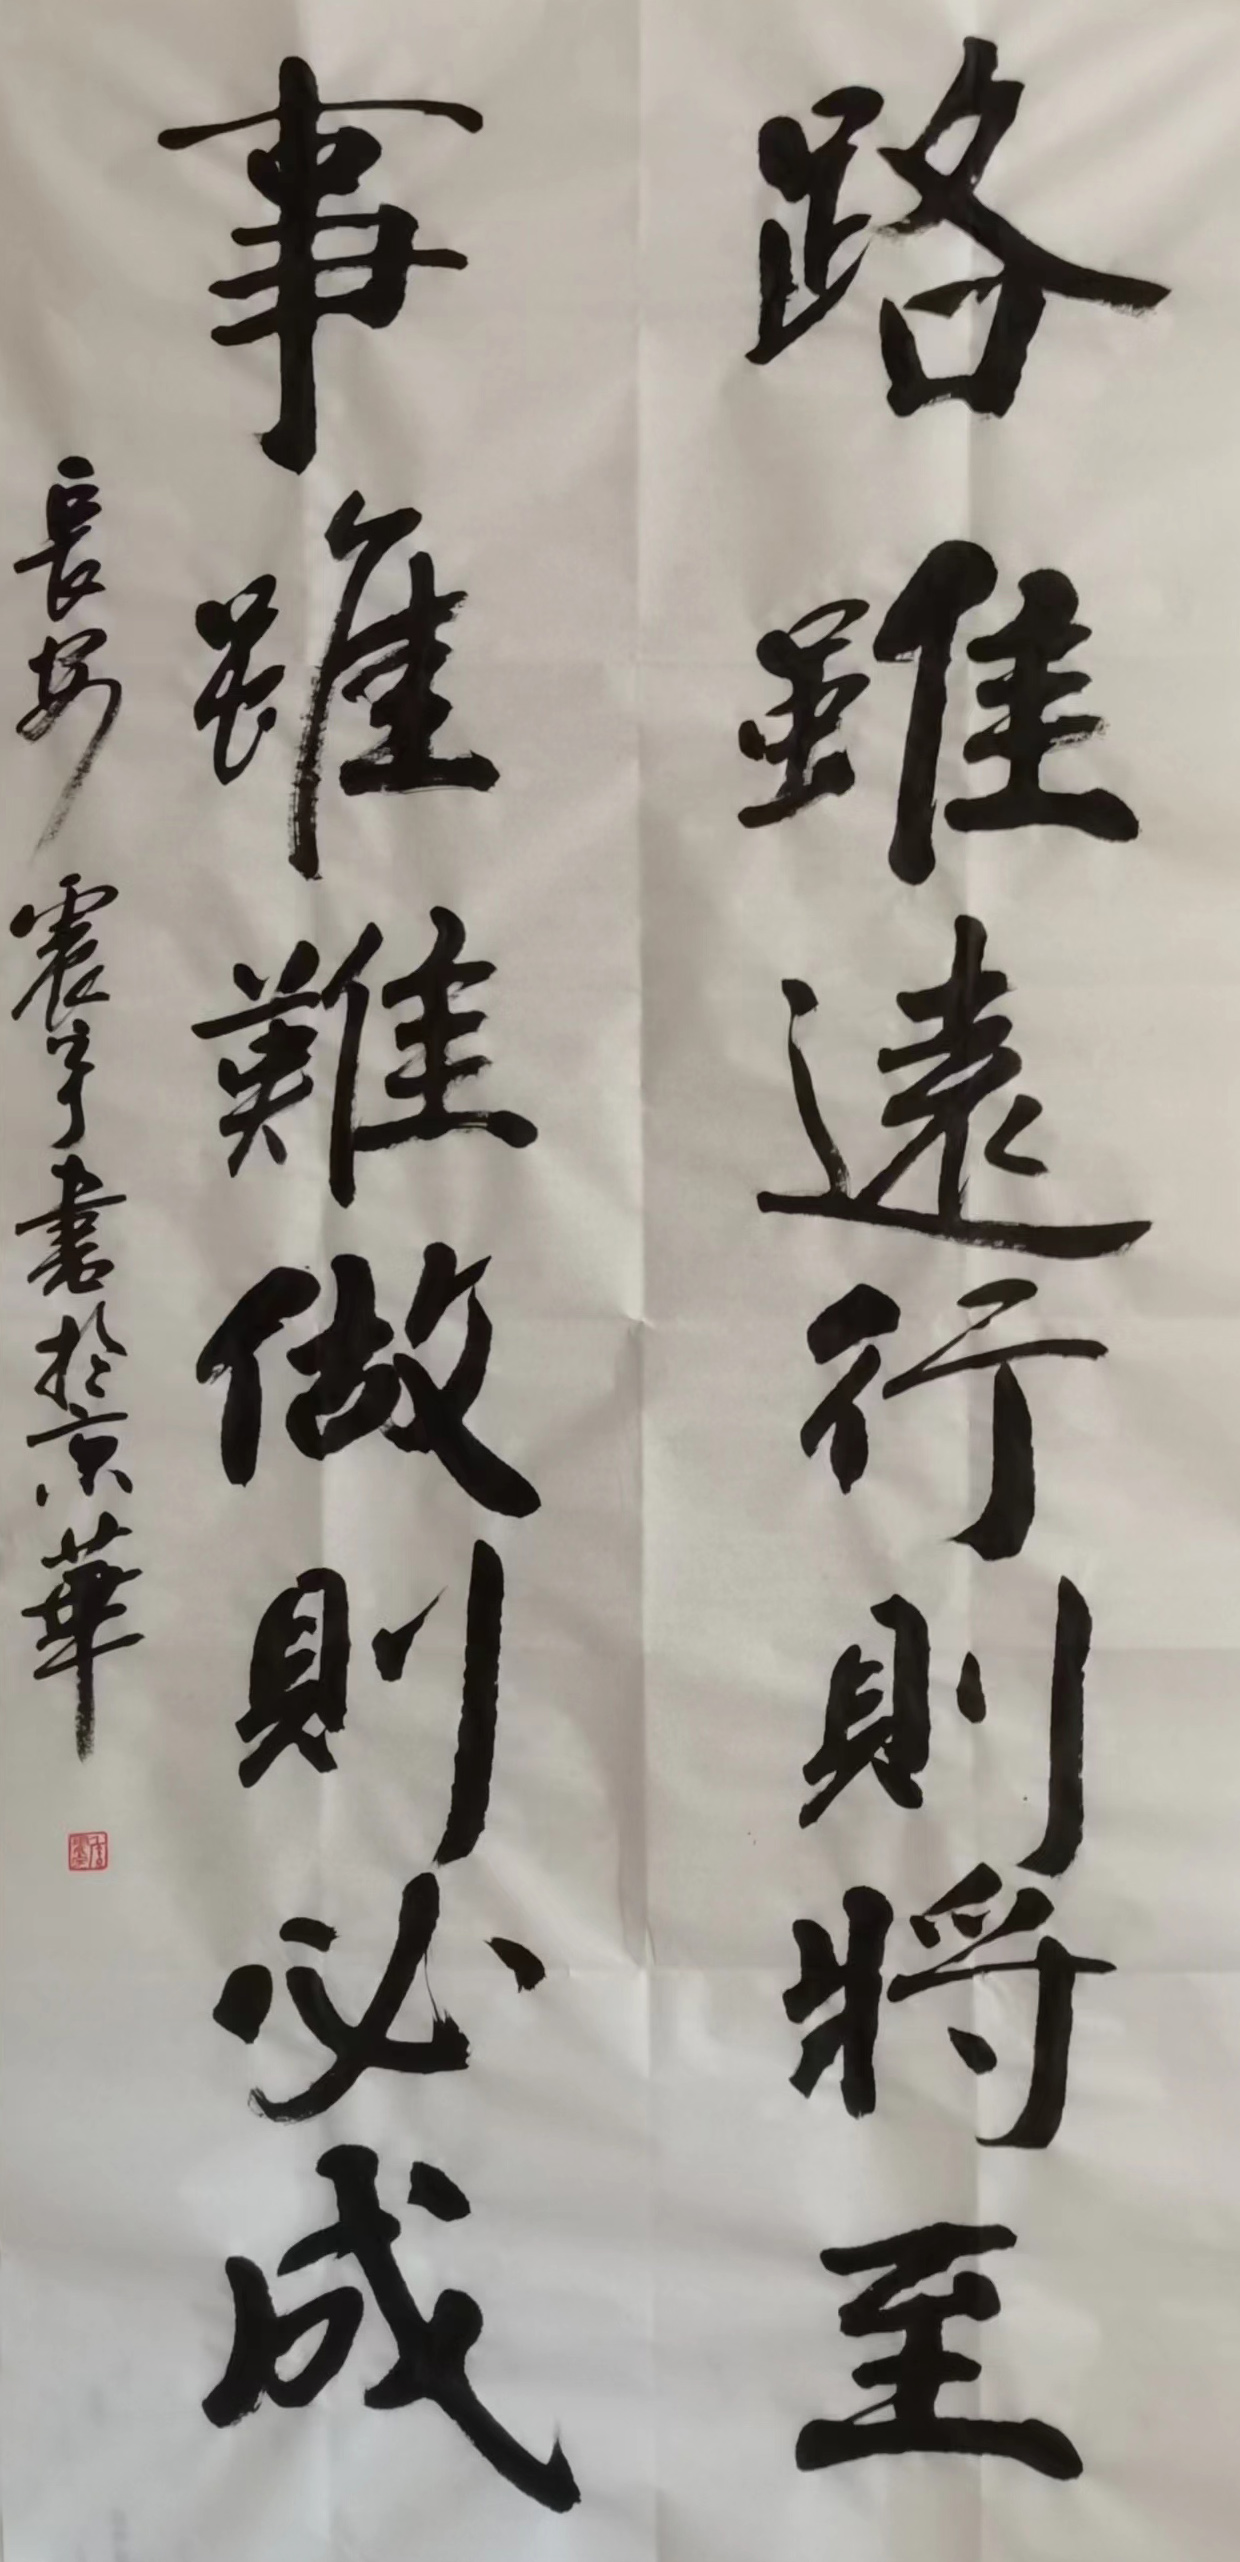 路雖遠行則將至
事雖難做則必成
長安震宇書於京華